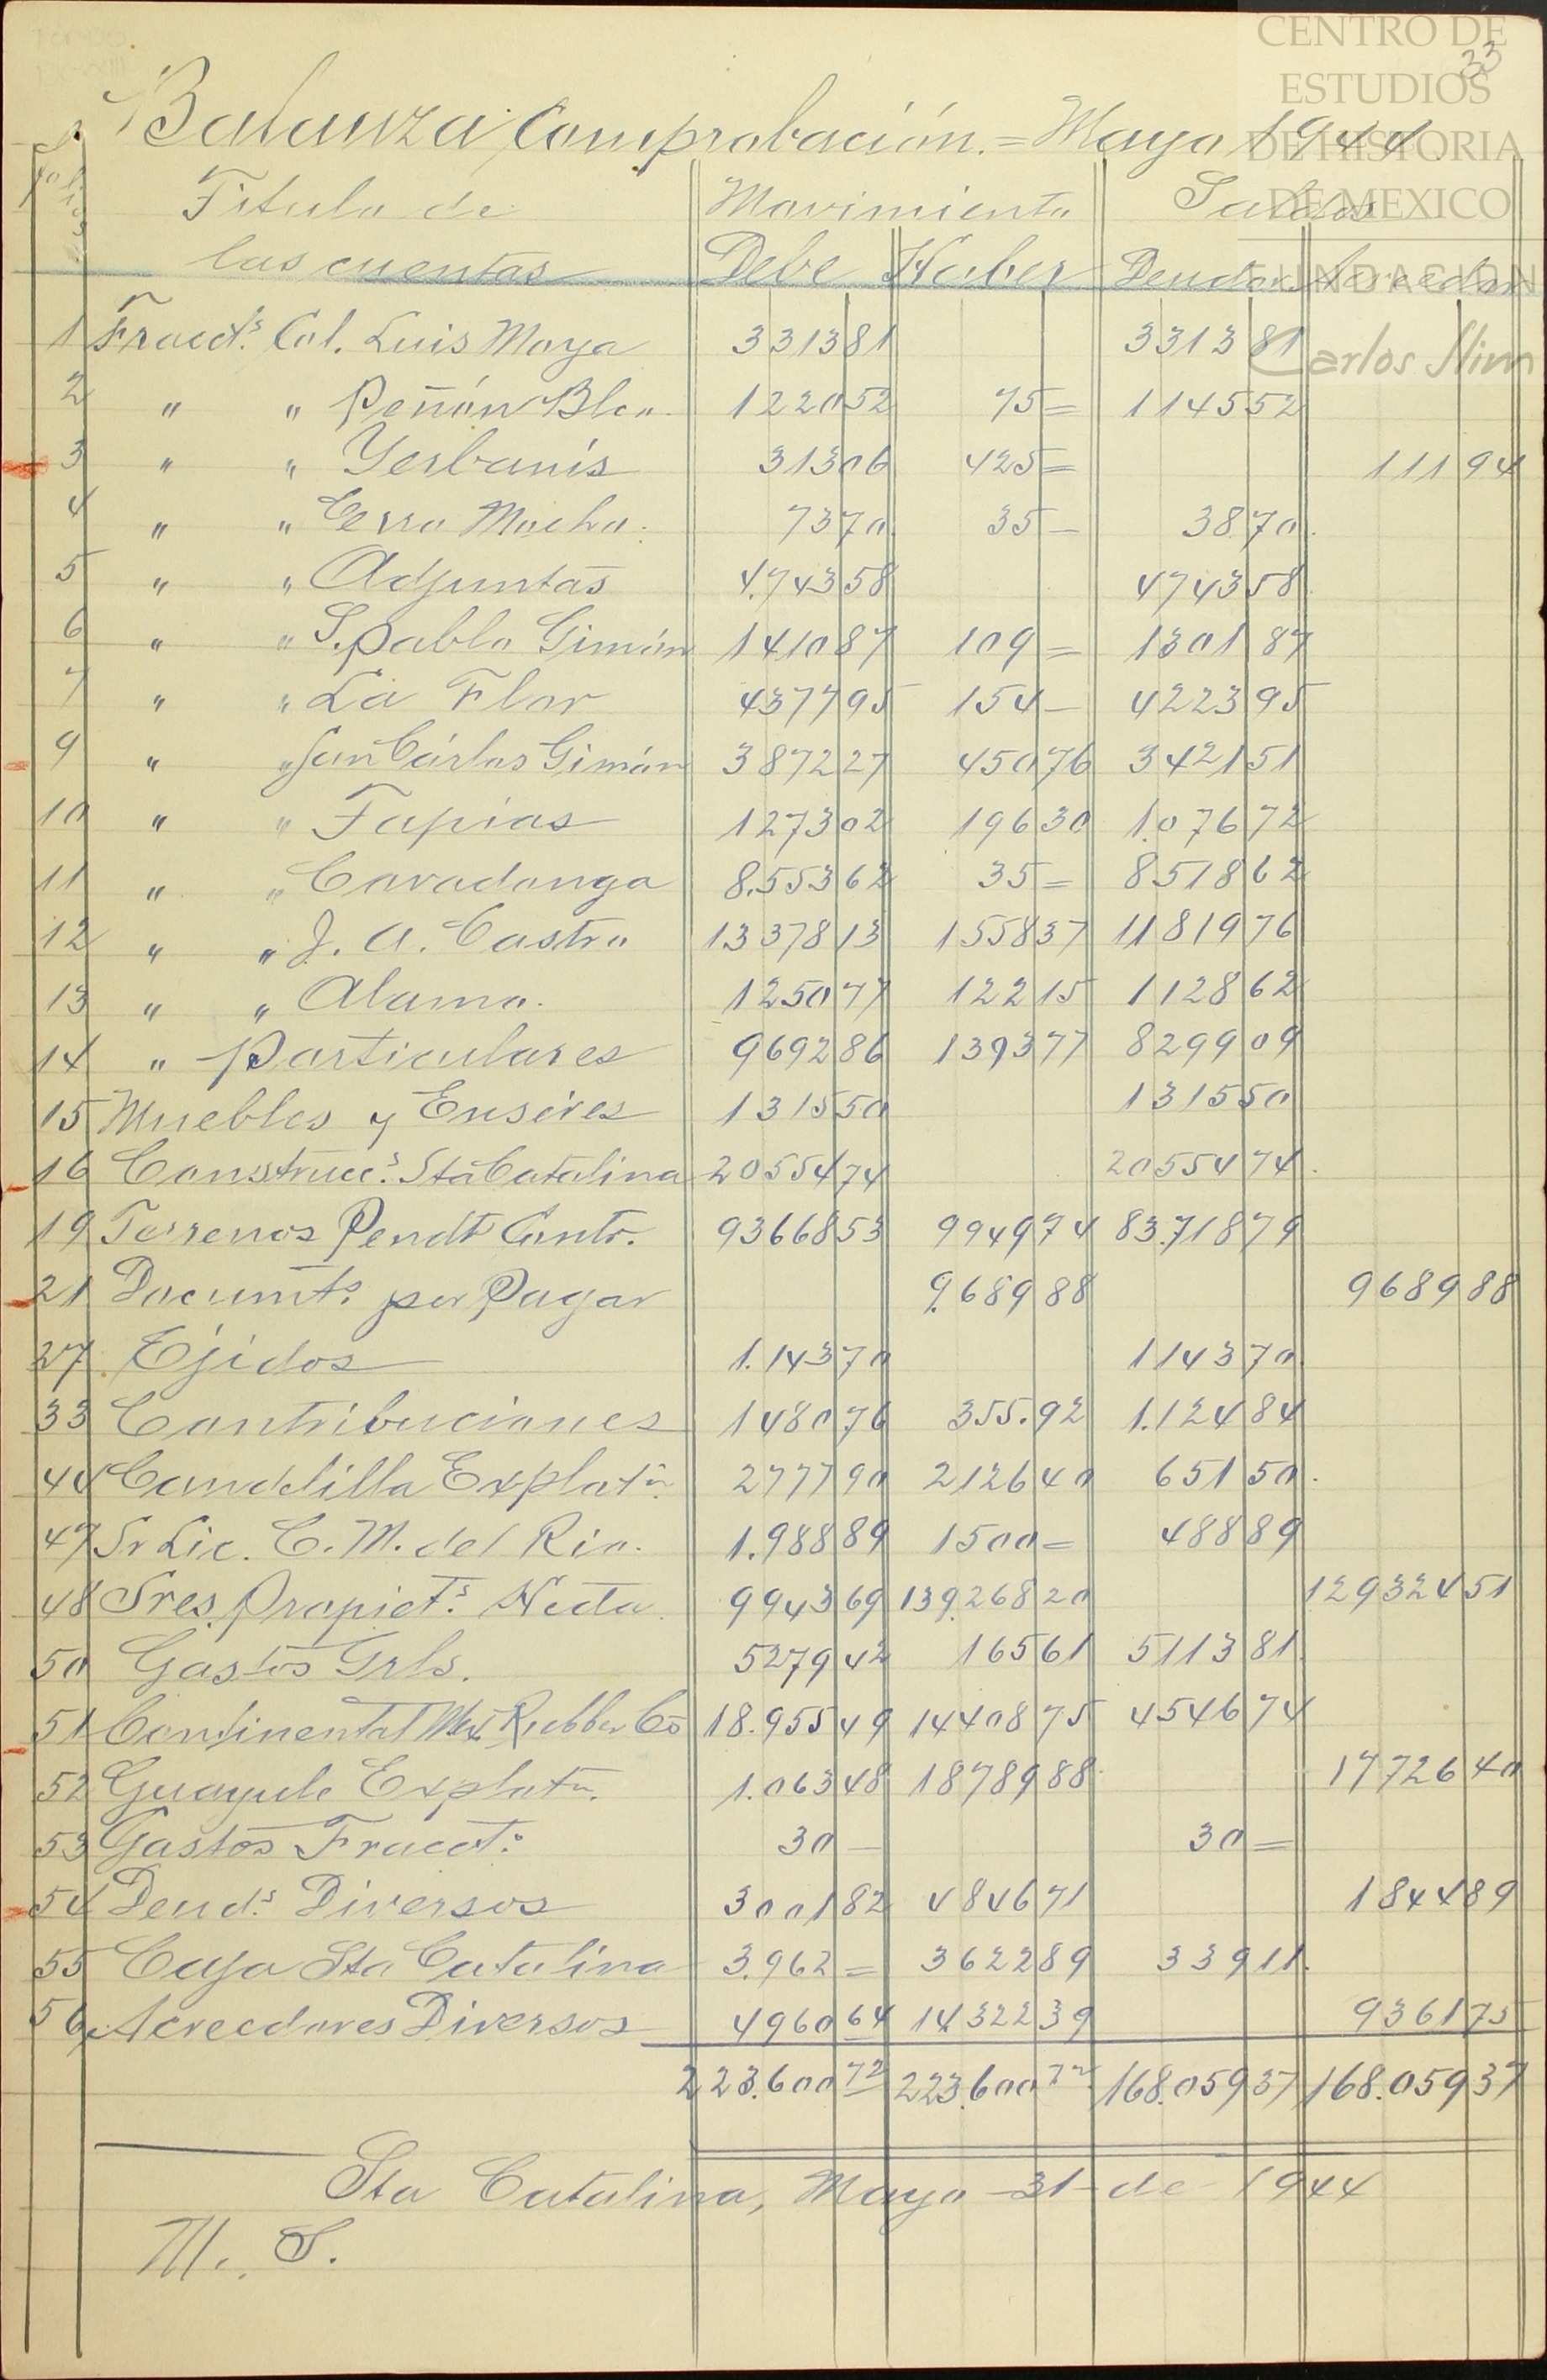 CENTRO DE
ESTUDIOS
DE HISTORIA
DE MEXICO
FUNDACIÓN
Carlos Slim
33
Balanza Comprobación.=Mayo 1944.
Folios
Titulo de las cuentas Movimiento Saldos
Debe Haber Deudor Acreedor
1 Fracct.s Col. Luis Moya 3313 81 3313 81
2 " " Peñón Blco. 1220 52 75= 1145 52
3 " " Yerbanís 313 06 425= 111 94
4 " " Cerro Mocho. 73 70 35- 38.70
5 " " Adjuntas 4.743 58 4743 58
6 " " S. Pablo Gimén 1410 87 109= 1301 87
7 " " La Flor 4377 95 154- 4223 95
9 " " San Cárlos Gimén 3872 27 450 76 3421 51
10 " " Tapias 1273 02 196 30 1.076 72
11 " " Covadonga 8.553 62 35= 8518 62
12 " " J. A. Castro 13378 13 1558 37 11819 76
13 " " Alamo. 1250 77 122 15 1128 62
14 " Particulares 9692 86 1393 77 8299 09
15 Muebles y Enseres 1315 50 1315 50
16 Construcc.s Sta Catalina 20554 74 20554 74
19 Terrenos Pendt Contr. 93668 53 9949 74 83.718 79
21 Documt.s por Pagar 9.689 88 9689 88
27 Ejidos 1.143 70 1143 70
33 Contribuciones 1480 76 355.92 1.124 84
44 Candelilla Explotn. 2777 90 2126 40 651 50
47 Sr Lic. C. M. del Rio. 1.988 89 1500= 488 89
48 Sres. Propiet.s Hcda. 9943 69 139.268 20 129324 51
50 Gastos Grls. 5279 42 165 61 5113 81
51 Continental Mex. Rubber Co 18.955 49 14408 75 4546 74
52 Guayule Explotn. 1.063 48 18789 88 17726 40
53 Gastos Fracct.s 30- 30=
54 Deud.s Diversos 3001 82 4846 71 1844 89
55 Caja Sta Catalina 3.962= 3622 89 339 11
56 Acreedores Diversos 4960 64 14322 39 9361 75
223.600 72 223.600 72 168.059 37 168.059 37
Sta Catalina, Mayo 31 de 1944
M. S.